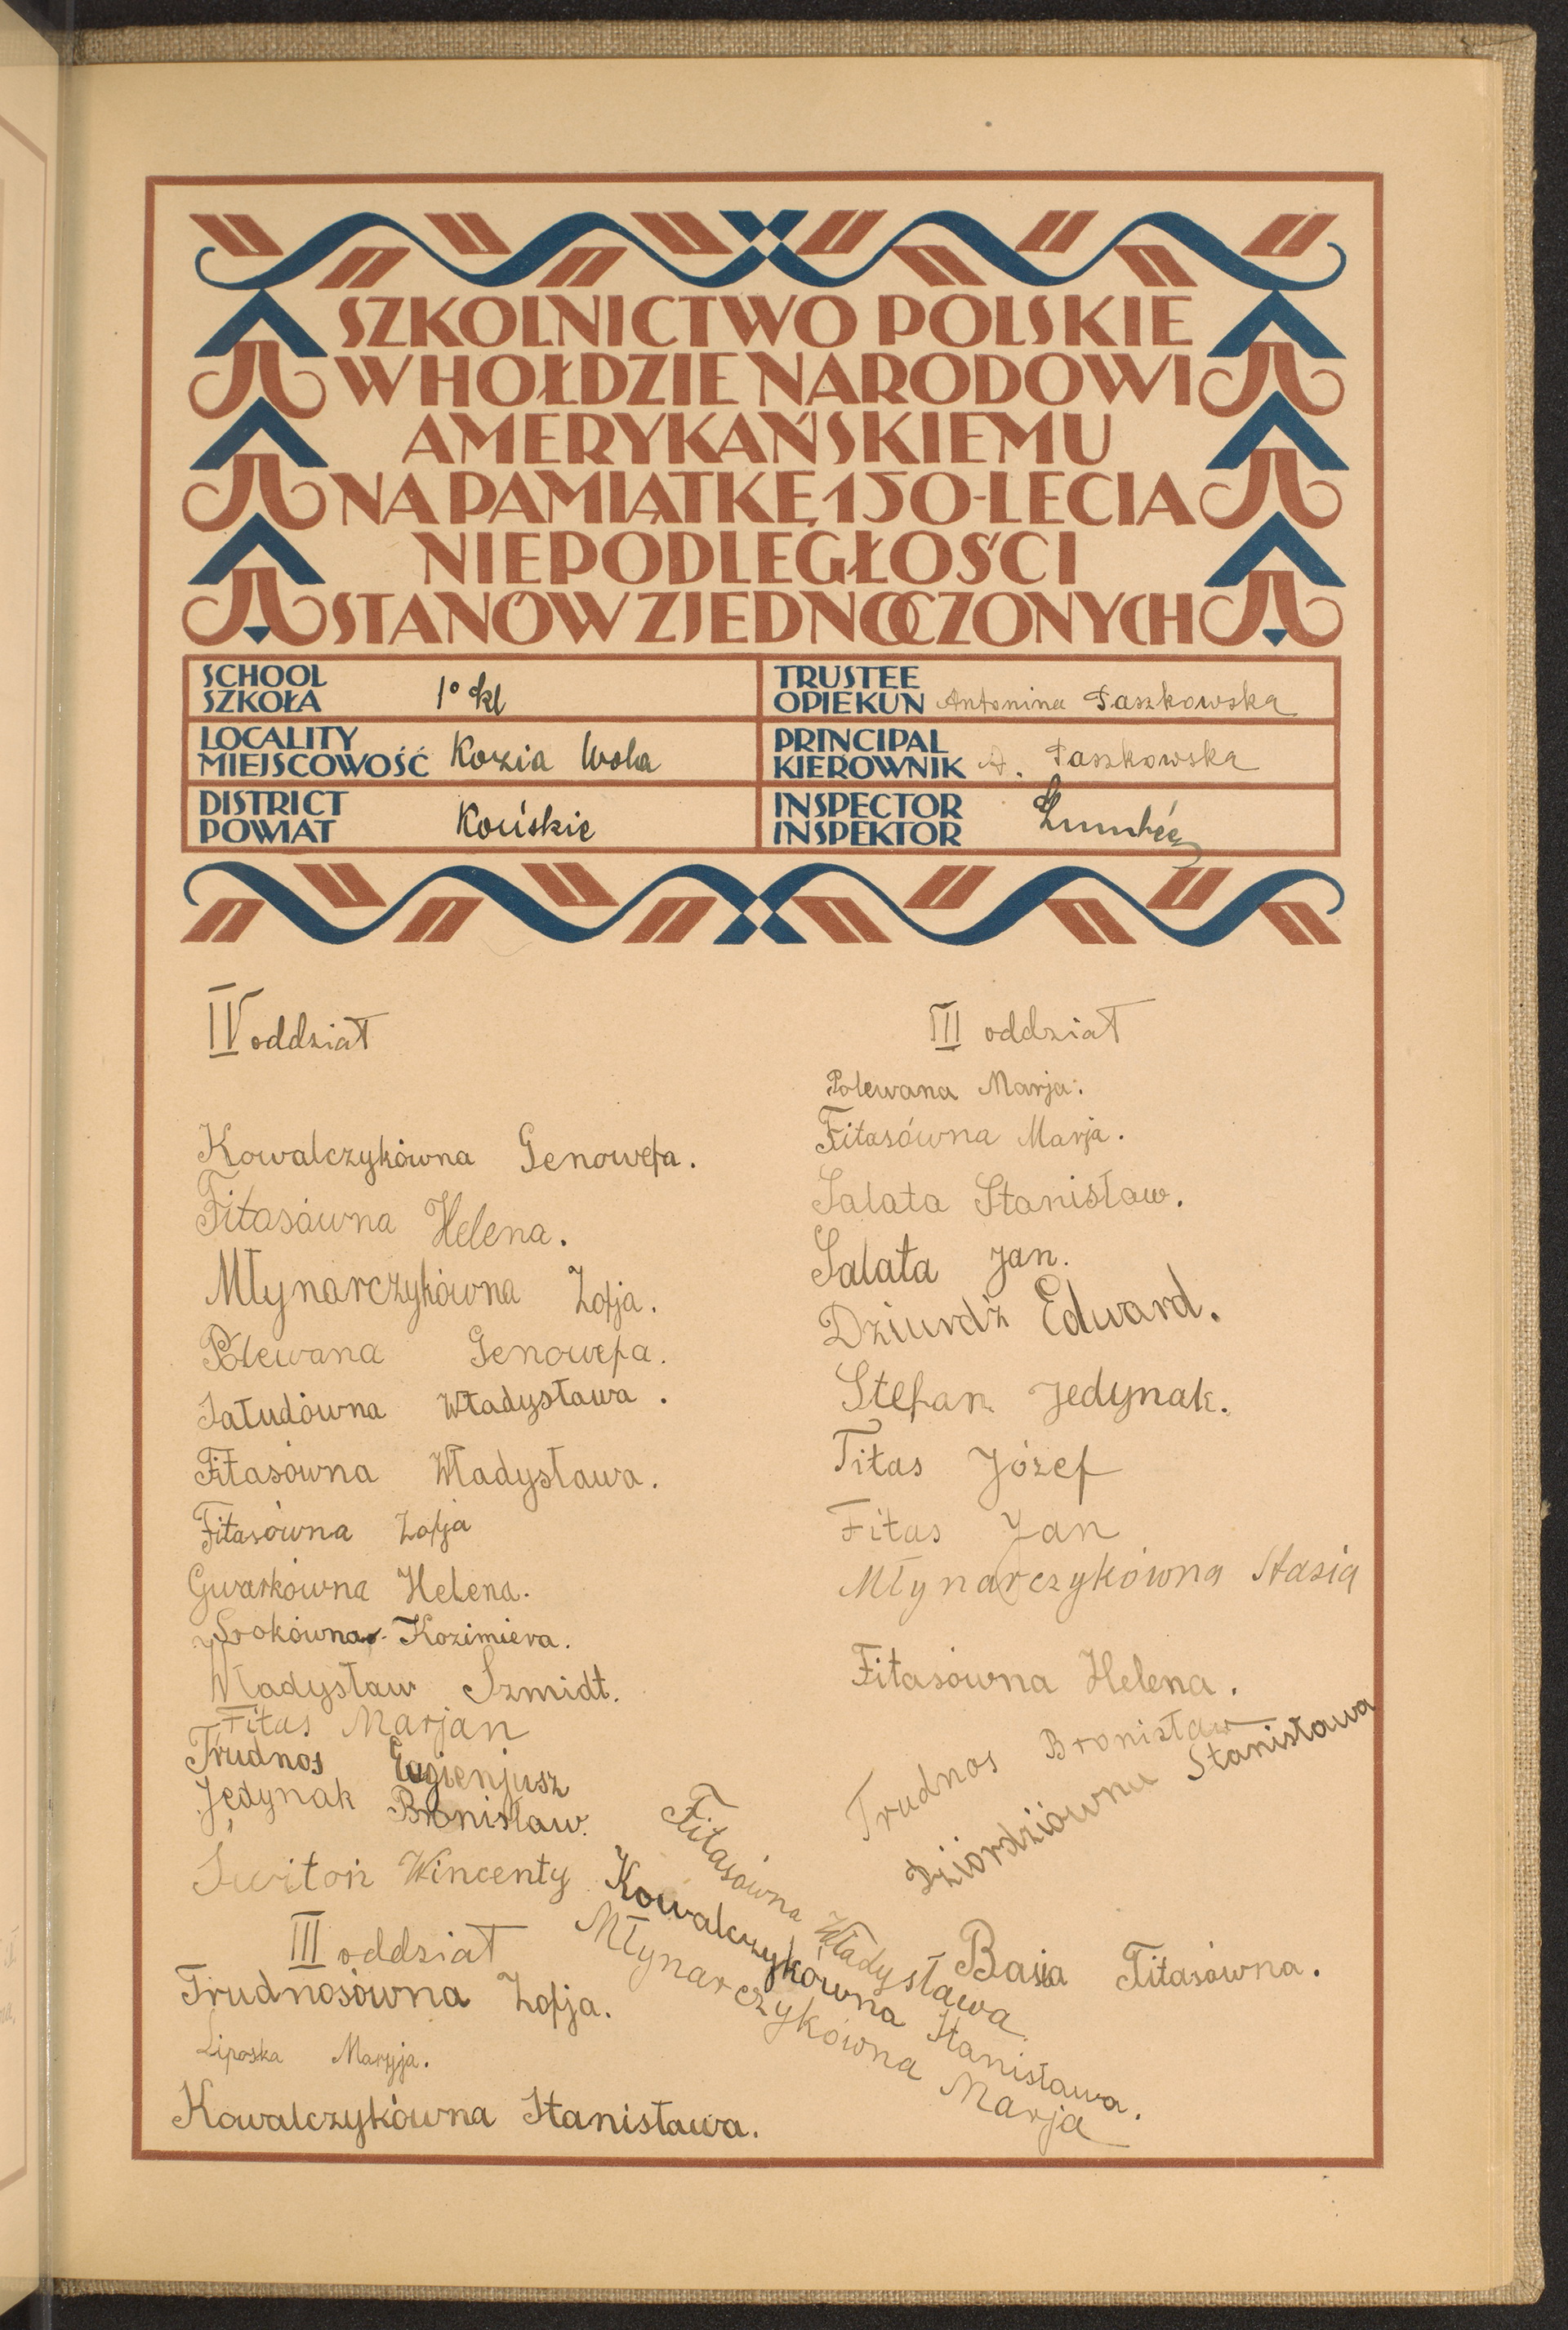 SZKOLNICTWO POLSKIE
W HOŁDZIE NARODOWI
AMERYKAŃSKIEMU
NA PAMIĄTKĘ 150-LECIA
NIEPODLEGŁOŚCI
STANÓW ZJEDNOCZONYCH
SCHOOL
SZKOŁA 1° kl
LOCALITY
MIEJSCOWOŚĆ Kozia Wola
DISTRICT
POWIAT Końskie
TRUSTEE
OPIEKUN Antonina Paszkowska
PRINCIPAL
KIEROWNIK A. Paszkowska
INSPECTOR
INSPEKTOR
IV oddział
Kowalczykówna Genowefa.
Fitasówna Helena.
Młynarczykówna Zofja.
Polewana Genowefa.
Sałudówna Władysława.
Fitasówna Władysława.
Fitasówna Zofja
Gwarkówna Helena.
Srokówna Kozimiera.
Władysław Szmidt.
Fitas Marjan
Trudnos Eugienjusz
Jedynak Bronisław.
Świtoń Wincenty
III oddział
Trudnosówna Zofja.
Liposka Maryja.
Kowalczykówna Stanisława.
III oddział
Polewana Marja.
Fitasówna Marja.
Salata Stanisław.
Salata Jan.
Dziurdź Edward.
Stefan Jedynak.
Fitas Józef
Fitas Jan
Młynarczykówna Stasia
Fitasówna Helena.
Trudnos Bronisław
Dziordziówna Stanisława
Basia Fitasówna.
Fitasówna Władysława
Kowalczykówna Stanisława.
Młynarczykówna Marja